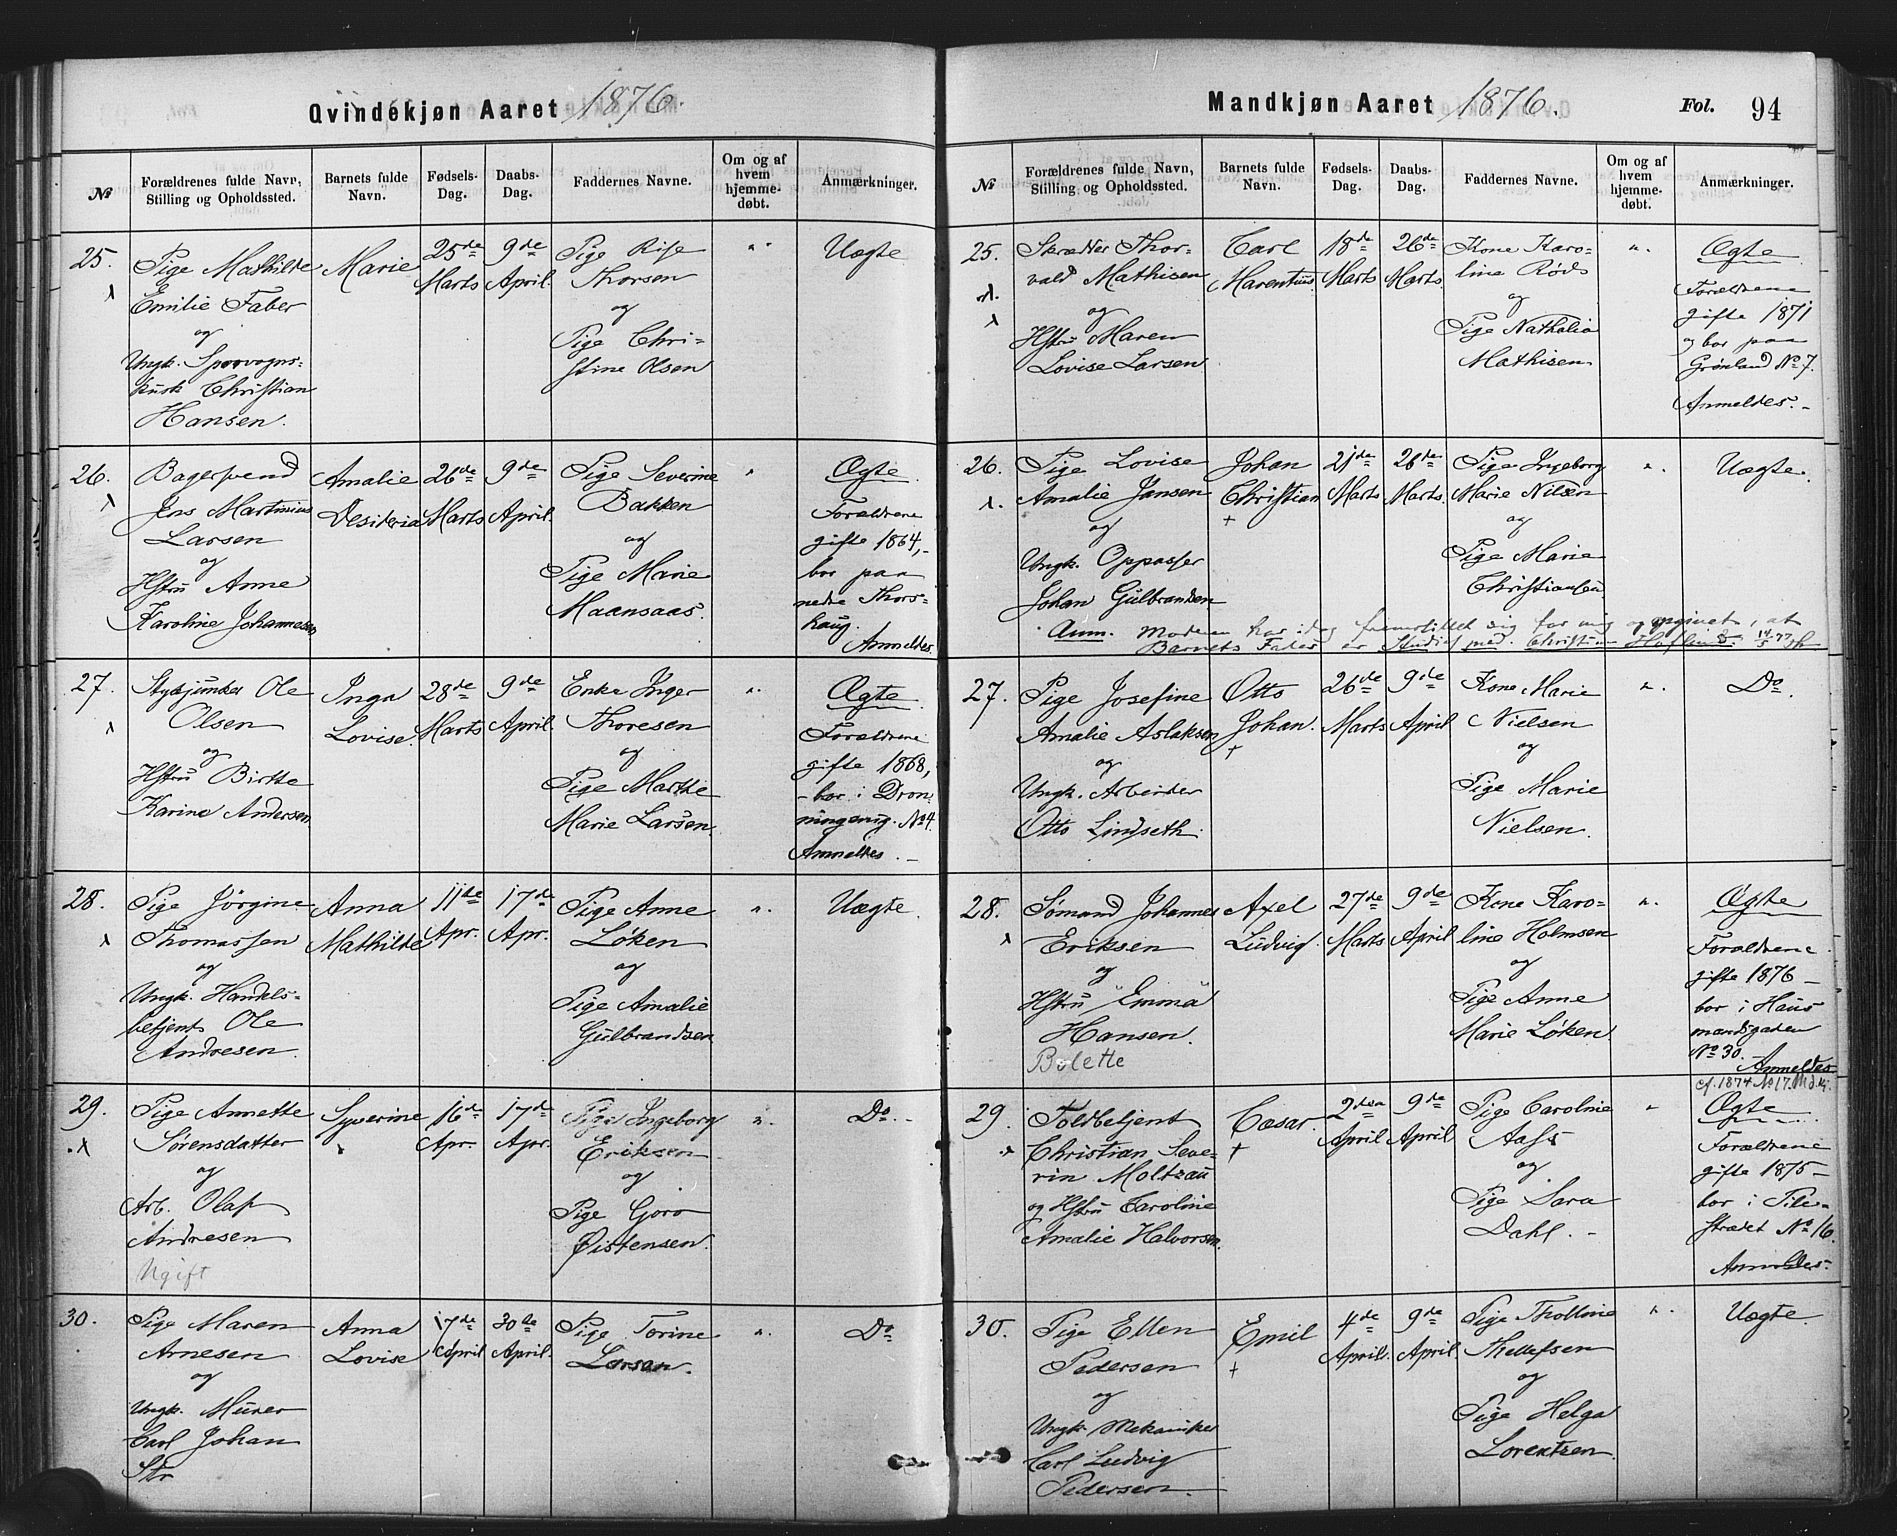 Qvindekjøn Aaret 1876.
№
Forældrenes fulde Navn,
Stilling og Opholdssted.
Barnets fulde
Navn.
Fødsels-
Dag.
Daabs-
Dag.
Faddernes Navne.
Om og af
hvem
hjemme-
døbt.
Anmærkninger.
25.
Pige Mathilde
Emilie Faber
og
Ungk. Sporvogns-
kusk Christian
Hansen.
Marie
25de
Marts
9de
April.
Pige Rise
Thorsen
og
Pige Chri-
stine Olsen
"
Uægte
26.
Bagersvend
Jens Martinius
Larsen
og
Hstru Anne
Karoline Johannesen
Amalie
Desideria
26de
Marts
9de
April.
Pige Severine
Bakken
og
Pige Marie
Maansaas.
"
Ægte
Forældrene
gifte 1864,-
bor paa
nedre Thors-
haug.
Anmeldes.
27.
Stykjunker Ole
Olsen
og
Hstru Birthe
Karine Andersen.
Inga
Lovise.
28de
Marts
9de
April.
Enke Inger
Thoresen
og
Pige Marthe
Marie Larsen.
"
Ægte
Forældrene
gifte 1868,
- bor i Dron-
ningensg. No 4.
Anmeldes. -
28.
Pige Jørgine
Thomassen
og
Ungk. Handels-
betjent Ole
Andresen.
Anna
Mathilde
11de
Apr.
17de
Apr.
Pige Anne
Løken
og
Pige Amalie
Gulbrandsen
"
Uægte.
29.
Pige Annette
Sørensdatter
og
Arb. Olaf
Andresen
Ugift
Syverine
16de
Apr.
17de
Apr.
Pige Ingeborg
Eriksen
og
Pige Goro
Øistensen.
"
Do. -
30.
Pige Maren
Arnesen
og
Ungk. Murer
Carl Johan
Str
Anna
Lovise
17de
April
30de
April.
Pige Torine
Larsen.
"
Do
Mandkjøn Aaret 1876.
Fol. 94
№
Forældrenes fulde Navn,
Stilling og Opholdssted.
Barnets fulde
Navn.
Fødsels-
Dag.
Daabs-
Dag.
Faddernes Navne.
Om og af
hvem
hjemme-
døbt.
Anmærkninger.
25.
Skrædder Thor-
vald Mathisen
og
Hstru Maren
Lovise Larsen
Carl
Marentius.
18de
Marts
26de
Marts.
Kone Karo-
line Røds
og
Pige Nathalia
Mathisen
"
Ægte
Forældrene
gifte 1871
og bor paa
Grønland No 7.
Anmeldes. -
26.
Pige Lovise
Amalie Jansen
og
Ungk. Oppasser
Johan Gulbrandsen
Johan
Christian
+
21de
Marts
26de
Marts.
Pige Ingeborg
Marie Nilsen
og
Pige Marie
Christiansen
"
Uægte.
Anm. Moderen har idag fremstillet sig for mig og opgivet, at
Barnets Fader er Studios. med. Christian
27.
Pige Josefine
Amalie Aslaksen
og
Ungk. Arbeider
Otto Lindseth.
Otto
Johan.
+
26de
Marts
9de
April
Kone Marie
Nielsen
og
Pige Marie
Nielsen.
"
Do.
28.
Sømand Johannes
Eriksen
og
Hstru Emma
Hansen.
Bolette
Axel
Ludvig.
27de
Marts
9de
April
Kone Karo-
line Holmsen
og
Pige Anne
Marie Løken.
"
Ægte
Forældrene
gifte 1876 -
bor i Haus-
mandsgaden
No 30. -
Anmeldes
cf. 1874 No 17.
29.
Toldbetjent
Christian Seve-
rin Moltzau
og Hstru Caroline
Amalie Halvorsen.
Cæsar.
+
2den
April
9de
April
Pige Caroline
Aass
og
Pige Sara
Dahl. -
"
Ægte
Forældrene
gifte 1875 -
bor i Pile-
strædet No 16.
Anmeldes.
30.
Pige Ellen
Pedersen
og
Ungk. Mekaniker
Carl Ludvig
Pedersen.
Emil
+
4de
April.
9de
April.
Pige Tholline
Thellefsen
og
Pige Helga
Lorentzen.
"
Uægte.